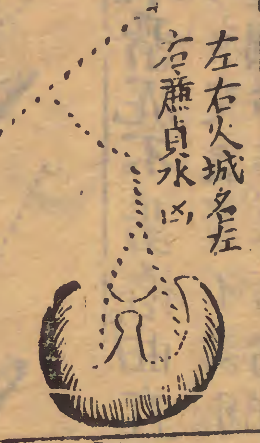 左右火城名左
右廉貞水凶